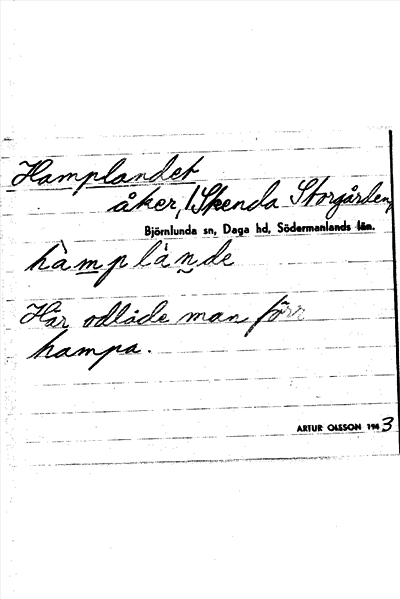 Hamplandet
åker, 1 Skenda Storgården,
Björnlunda sn, Daga hd, Södermanlands län.
hàmplánde
Här odlade man förr
hampa.
ARTUR OLSSON 1943